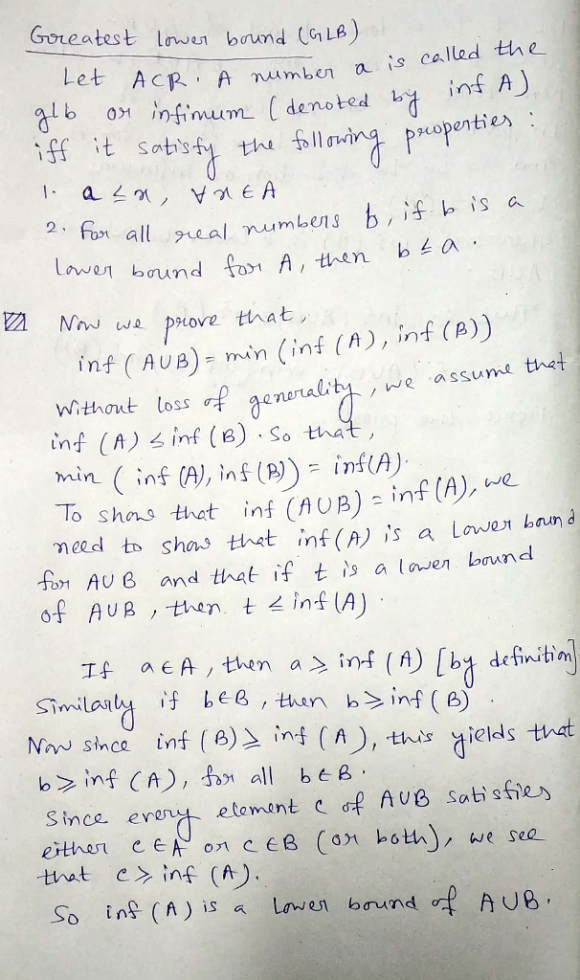 Greatest lower bound (GLB)
Let A⊂R. A number a is called the
glb or infimum (denoted by inf A)
iff it satisfy the following properties :
1. a ≤ x, ∀ x ∈ A
2. For all real numbers b, if b is a
lower bound for A, then b ≤ a.
Now we prove that,
inf (A∪B) = min (inf (A), inf (B))
Without loss of generality, we assume that
inf (A) ≤ inf (B). So that,
min (inf (A), inf (B)) = inf(A).
To show that inf (A∪B) = inf (A), we
need to show that inf (A) is a lower bound
for A∪B and that if t is a lower bound
of A∪B, then t ≤ inf (A).
If a ∈ A, then a ≥ inf (A) [by definition]
Similarly if b∈B, then b ≥ inf (B).
Now since inf (B) ≥ inf (A), this yields that
b ≥ inf (A), for all b∈B.
Since every element c of A∪B satisfies
either c ∈ A or c ∈ B (or both), we see
that c ≥ inf (A).
So inf (A) is a lower bound of A∪B.